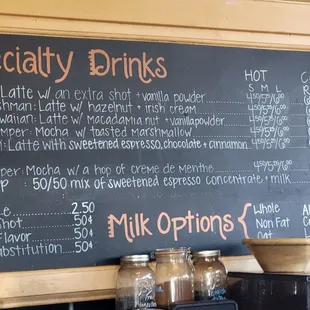 ecialty Drinks
HOT
C
S M L
R
Latte w/ an extra shot + vanilla powder
shman: Latte w/ hazelnut + irish cream
waiian: Latte w/ Macadamia nut + vanilla powder
mper: Mocha w/ toasted Marshmallow
: Latte with sweetened espresso, chocolate + cinnamon
mper: Mocha w/ a hop of creme de menthe
50/50 mix of sweetened espresso concentrate + milk
2.50
Shot 50¢
Flavor 50¢
ubstitution 50¢
Milk Options {
Whole
Non Fat
Oat